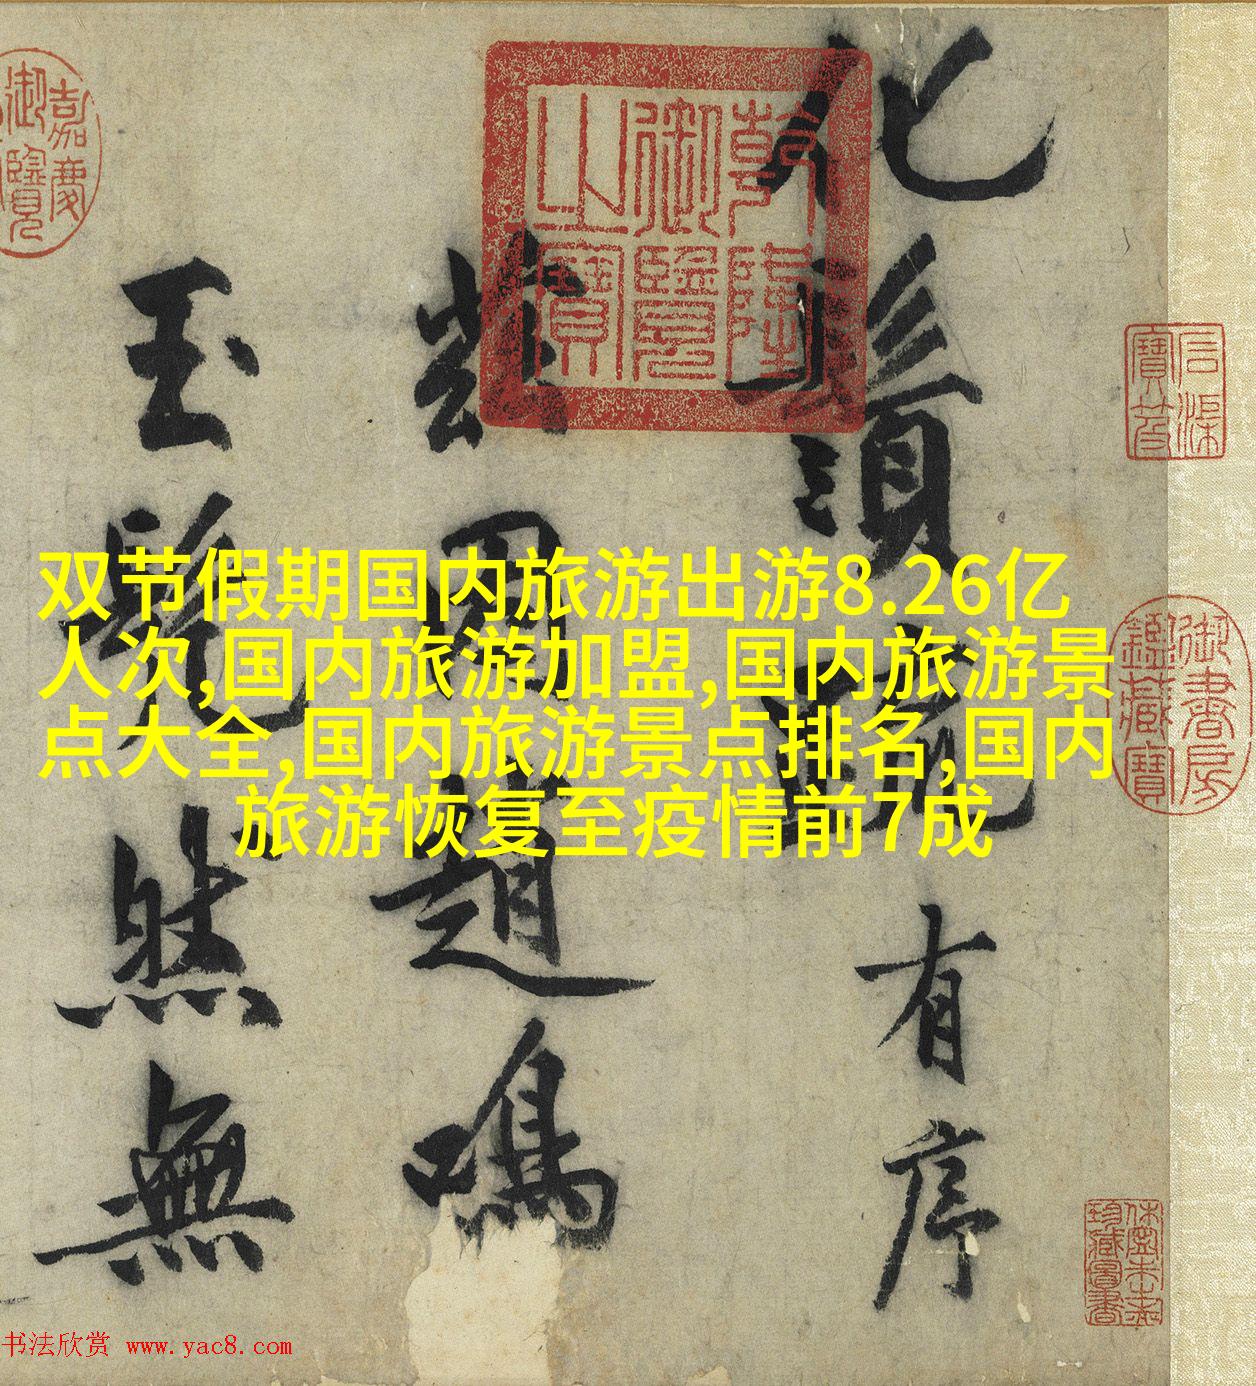 化鬚疏有序
兹因趙鳴
玉髡然無
乾隆
御覽
之寶
嘉慶
御覽
石渠
寶笈
御書房
鑑藏寶
休寧朱之赤
珍藏圖書
双节假期国内旅游出游8.26亿
人次,国内旅游加盟,国内旅游景
点大全,国内旅游景点排名,国内
旅游恢复至疫情前7成
书法欣赏 www.yac8.com